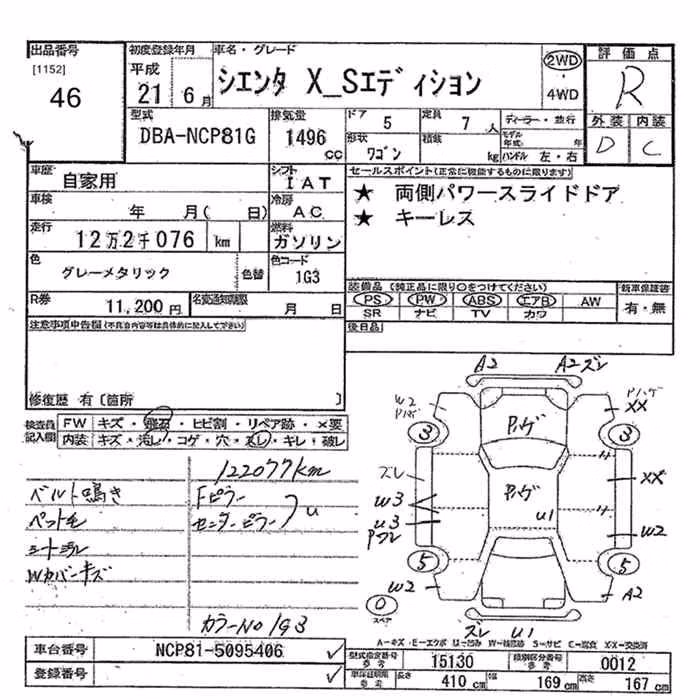 出品番号
[1152]
46
初度登録年月
平成
21 6月
車名・グレード
シエンタ X_Sエディション
2WD
・
4WD
評価点
R
外装 内装
D C
型式
DBA-NCP81G
排気量
1496
cc
ドア 5
定員 7人
形状 ワゴン
積載 kg
ディーラー・並行
モデル年式 年
ハンドル 左・右
車歴
自家用
シフト
IAT
車検
年 月( 日)
冷房
AC
走行
12万2千076 km
燃料
ガソリン
色
グレーメタリック
色替
色コード
1G3
R券
11,200円
名変通知期限
月 日
セールスポイント(正常に機能するものに限ります)
★ 両側パワースライドドア
★ キーレス
装備品(純正品に限り○をつけてください)
PS PW ABS エアB AW
SR ナビ TV カワ
新車保証書
有・無
後日品
注意事項申告欄(不具合内容等は具体的に記入して下さい)
修復歴 有〔箇所 〕
検査員記入欄
FW キズ・飛石・ヒビ割・リペア跡・×要
内装 キズ・汚れ・コゲ・穴・スレ・キレ・破レ
122077km
ベルト鳴き
ペット毛
Fピラー
センターピラー
u
Wカバーキズ
カラーNo 1G3
A2
A2 ズレ
W2
Pハゲ
Pハゲ
XX
3
3
Pハゲ
ズレ
XX
W3
u3
Pハゲ
U1
W2
5
5
W2
A2
0
スペア
ズレ U1
A-キズ・E-エクボ・U-凹み・W-補修跡・S-サビ・C-腐食・XX-交換済
車台番号
NCP81-5095406
登録番号
型式指定番号
参考
15130
類別区分番号
参考
0012
車体証明用
参考
長さ 410 cm
幅 169 cm
高さ 167 cm